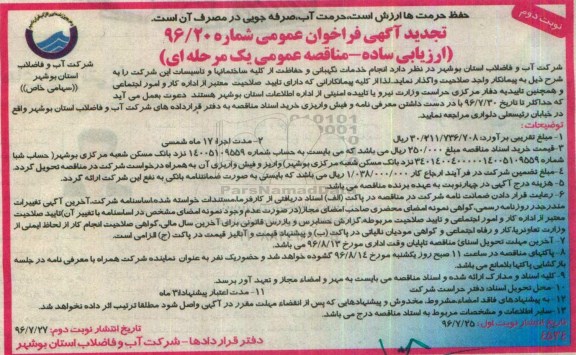 نوبت دوم
حفظ حرمت ها ارزش است،حرمت آب،صرفه جویی در مصرف آن است.
تجدید آگهی فراخوان عمومی شماره ۹۶/۲۰
(ارزیابی ساده-مناقصه عمومی یک مرحله ای)
شرکت آب و فاضلاب
استان بوشهر
((سهامی خاص))
شرکت آب و فاضلاب استان بوشهر در نظر دارد انجام خدمات نگهبانی و حفاظت از کلیه ساختمانها و تاسیسات این شرکت را به
شرح ذیل به پیمانکار واجد صلاحیت واگذار نماید. لذا از کلیه پیمانکارانی که دارای تایید صلاحیت معتبر از اداره کار و امور اجتماعی
و همچنین تاییدیه دفتر مرکزی حراست وزارت نیرو یا تاییده امنیتی از اداره اطلاعات استان بوشهر هستند دعوت بعمل می آید
که حداکثر تا تاریخ ۹۶/۷/۳۰ با در دست داشتن معرفی نامه و فیش واریزی خرید اسناد مناقصه به دفتر قراردادهای شرکت آب و فاضلاب استان بوشهر واقع
در خیابان رئیسعلی دلواری مراجعه نمایند.
توضیحات:
۱-مبلغ تقریبی برآورد: ۳۰/۲۱۱/۷۳۶/۷۰۸ ریال ۲-مدت اجرا: ۱۷ ماه شمسی
۳-قیمت خرید اسناد مناقصه مبلغ ۲۵۰/۰۰۰ ریال می باشد که می بایست به حساب شماره ۱۴۰۰۵۱۰۹۵۵۹ نزد بانک مسکن شعبه مرکزی بوشهر( حساب شبا
شماره نزد بانک مسکن شعبه مرکزی بوشهر) واریز و فیش واریزی آن به همراه درخواست شرکت در مناقصه تحویل گردد.
۴-مبلغ تضمین شرکت در فرآیند ارجاع کار ۱/۰۳۸/۰۰۰/۰۰۰ ریال می باشد که بایستی به صورت ضمانتنامه بانکی به نفع این شرکت ارائه گردد.
۵- هزینه درج آگهی در چهارنوبت به عهده برنده مناقصه می باشد.
۶- رعایت و قرار دادن ضمانت نامه شرکت در مناقصه در پاکت (الف) اسناد دریافتی از کارفرما،مستندات خواسته شده(اساسنامه شرکت،آخرین آگهی تغییرات
مندرجدر روزنامه رسمی،گواهی نمونه امضای محضری صاحب امضای مجاز(در صورت عدم وجود نمونه امضای مشخص در اساسنامه یا تغییر آن)تایید صلاحیت
معتبر از اداره کار و امور اجتماعی و تایید صلاحیت مربوطه، گزارش حسابرس و بازرس قانونی برای آخرین سال مالی،گواهی صلاحیت انجام کار از لحاظ ایمنی از
وزارت تعاون،رفاه کار و رفاه اجتماعی و گواهی مودیان مالیاتی در پاکت (ب) و پیشنهاد قیمت و آنالیز قیمت در پاکت (ج) الزامی است.
۷- آخرین مهلت تحویل اسناد: مناقصه تاپایان وقت اداری مورخ ۹۶/۸/۱۳ می باشد.
۸- پاکتهای مناقصه در ساعت ۱۱ صبح روز یکشنبه مورخ ۹۶/۸/۱۴ گشوده خواهد شد و حضوریک نفر به عنوان نماینده شرکت همراه با معرفی نامه در جلسه
بازگشایی پاکتها بلامانع می باشد.
۹- کلیه اسناد و مدارک ارائه شده و اسناد مناقصه می بایست به مهر و امضاء مجاز و تعهد آور برسد.
۱۰- محل تحویل اسناد: دفتر حراست شرکت ۱۱- مدت اعتبار پیشنهادها:۳ ماه
۱۲- به پیشنهادهای فاقد امضاء،مشروط، مخدوش و پیشنهادهایی که پس از انقضاء مهلت مقرر در آگهی واصل شود مطلقا ترتیب اثر داده نخواهد شد.
۱۳- سایر اطلاعات و مشخصات مربوطه به اسناد مناقصه درج می باشد.
تاریخ انتشار نوبت اول: ۹۶/۷/۲۵ تاریخ انتشار نوبت دوم: ۹۶/۷/۲۷
دفتر قراردادها- شرکت آب و فاضلاب استان بوشهر